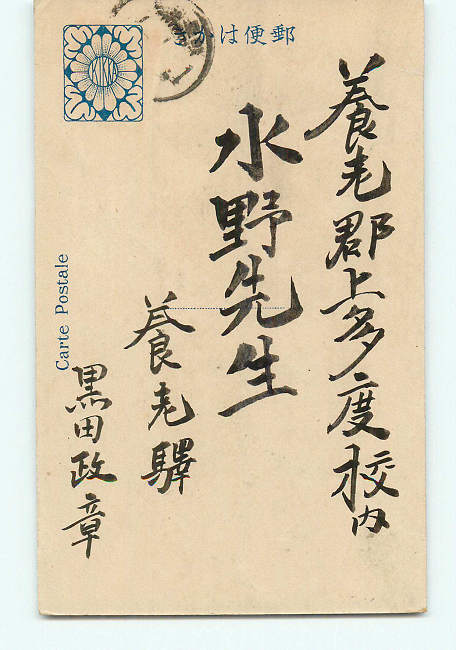 きかは便郵
養老郡上多度校内
水野先生
養老驛
黒田政章
Carte Postale